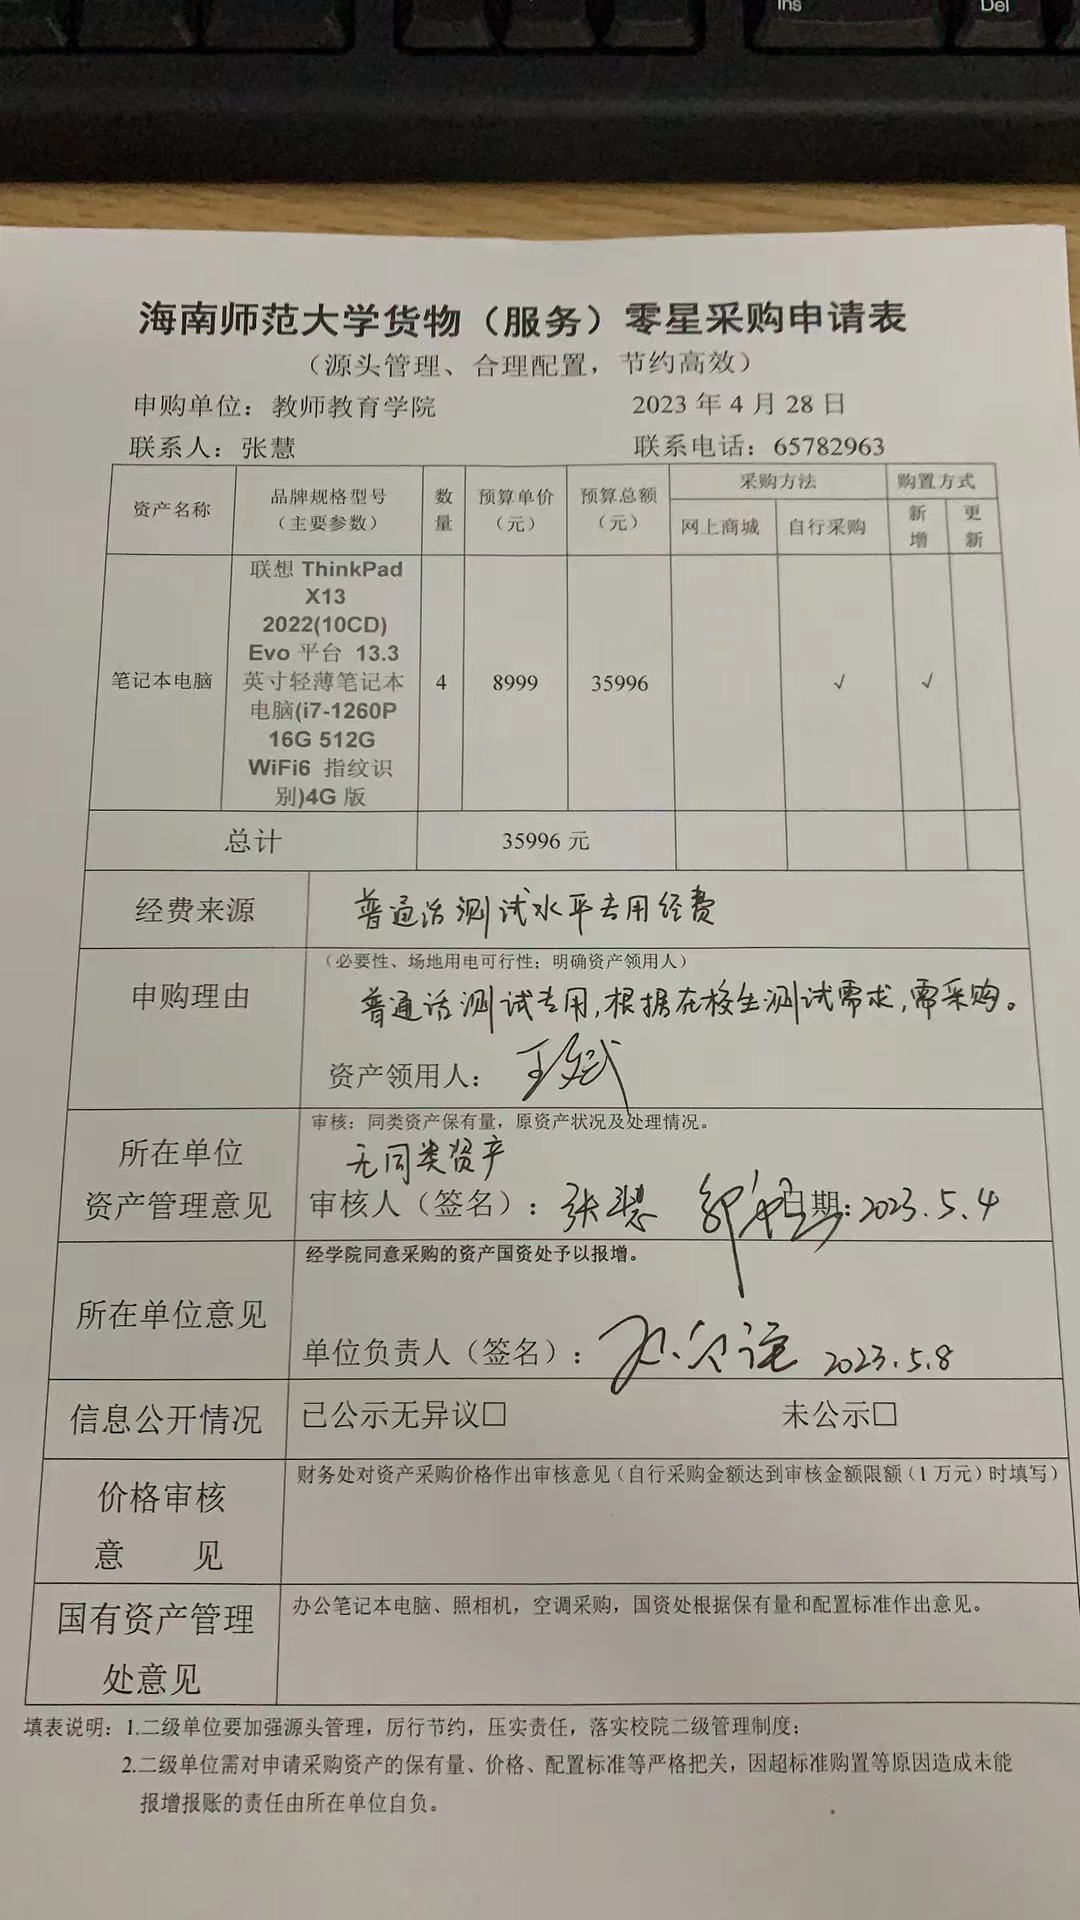 Ins
Del
海南师范大学货物（服务）零星采购申请表
（源头管理、合理配置，节约高效）
申购单位：教师教育学院
2023 年 4 月 28 日
联系人：张慧
联系电话：65782963
资产名称
品牌规格型号
（主要参数）
数
量
预算单价
（元）
预算总额
（元）
采购方法
购置方式
网上商城
自行采购
新
增
更
新
笔记本电脑
联想 ThinkPad
X13
2022(10CD)
Evo 平台 13.3
英寸轻薄笔记本
电脑(i7-1260P
16G 512G
WiFi6 指纹识
别)4G 版
4
8999
35996
√
√
总计
35996 元
经费来源
普通话测试水平专用经费
申购理由
（必要性、场地用电可行性；明确资产领用人）
普通话测试专用，根据在校生测试需求，需采购。
资产领用人：
所在单位
资产管理意见
审核：同类资产保有量，原资产状况及处理情况。
无同类资产
审核人（签名）：张慧
日期：2023.5.4
所在单位意见
经学院同意采购的资产国资处予以报增。
单位负责人（签名）：
2023.5.8
信息公开情况
已公示无异议□
未公示□
价格审核
意 见
财务处对资产采购价格作出审核意见（自行采购金额达到审核金额限额（1 万元）时填写）
国有资产管理
处意见
办公笔记本电脑、照相机，空调采购，国资处根据保有量和配置标准作出意见。
填表说明：1.二级单位要加强源头管理，厉行节约，压实责任，落实校院二级管理制度；
2.二级单位需对申请采购资产的保有量、价格、配置标准等严格把关，因超标准购置等原因造成未能
报增报账的责任由所在单位自负。